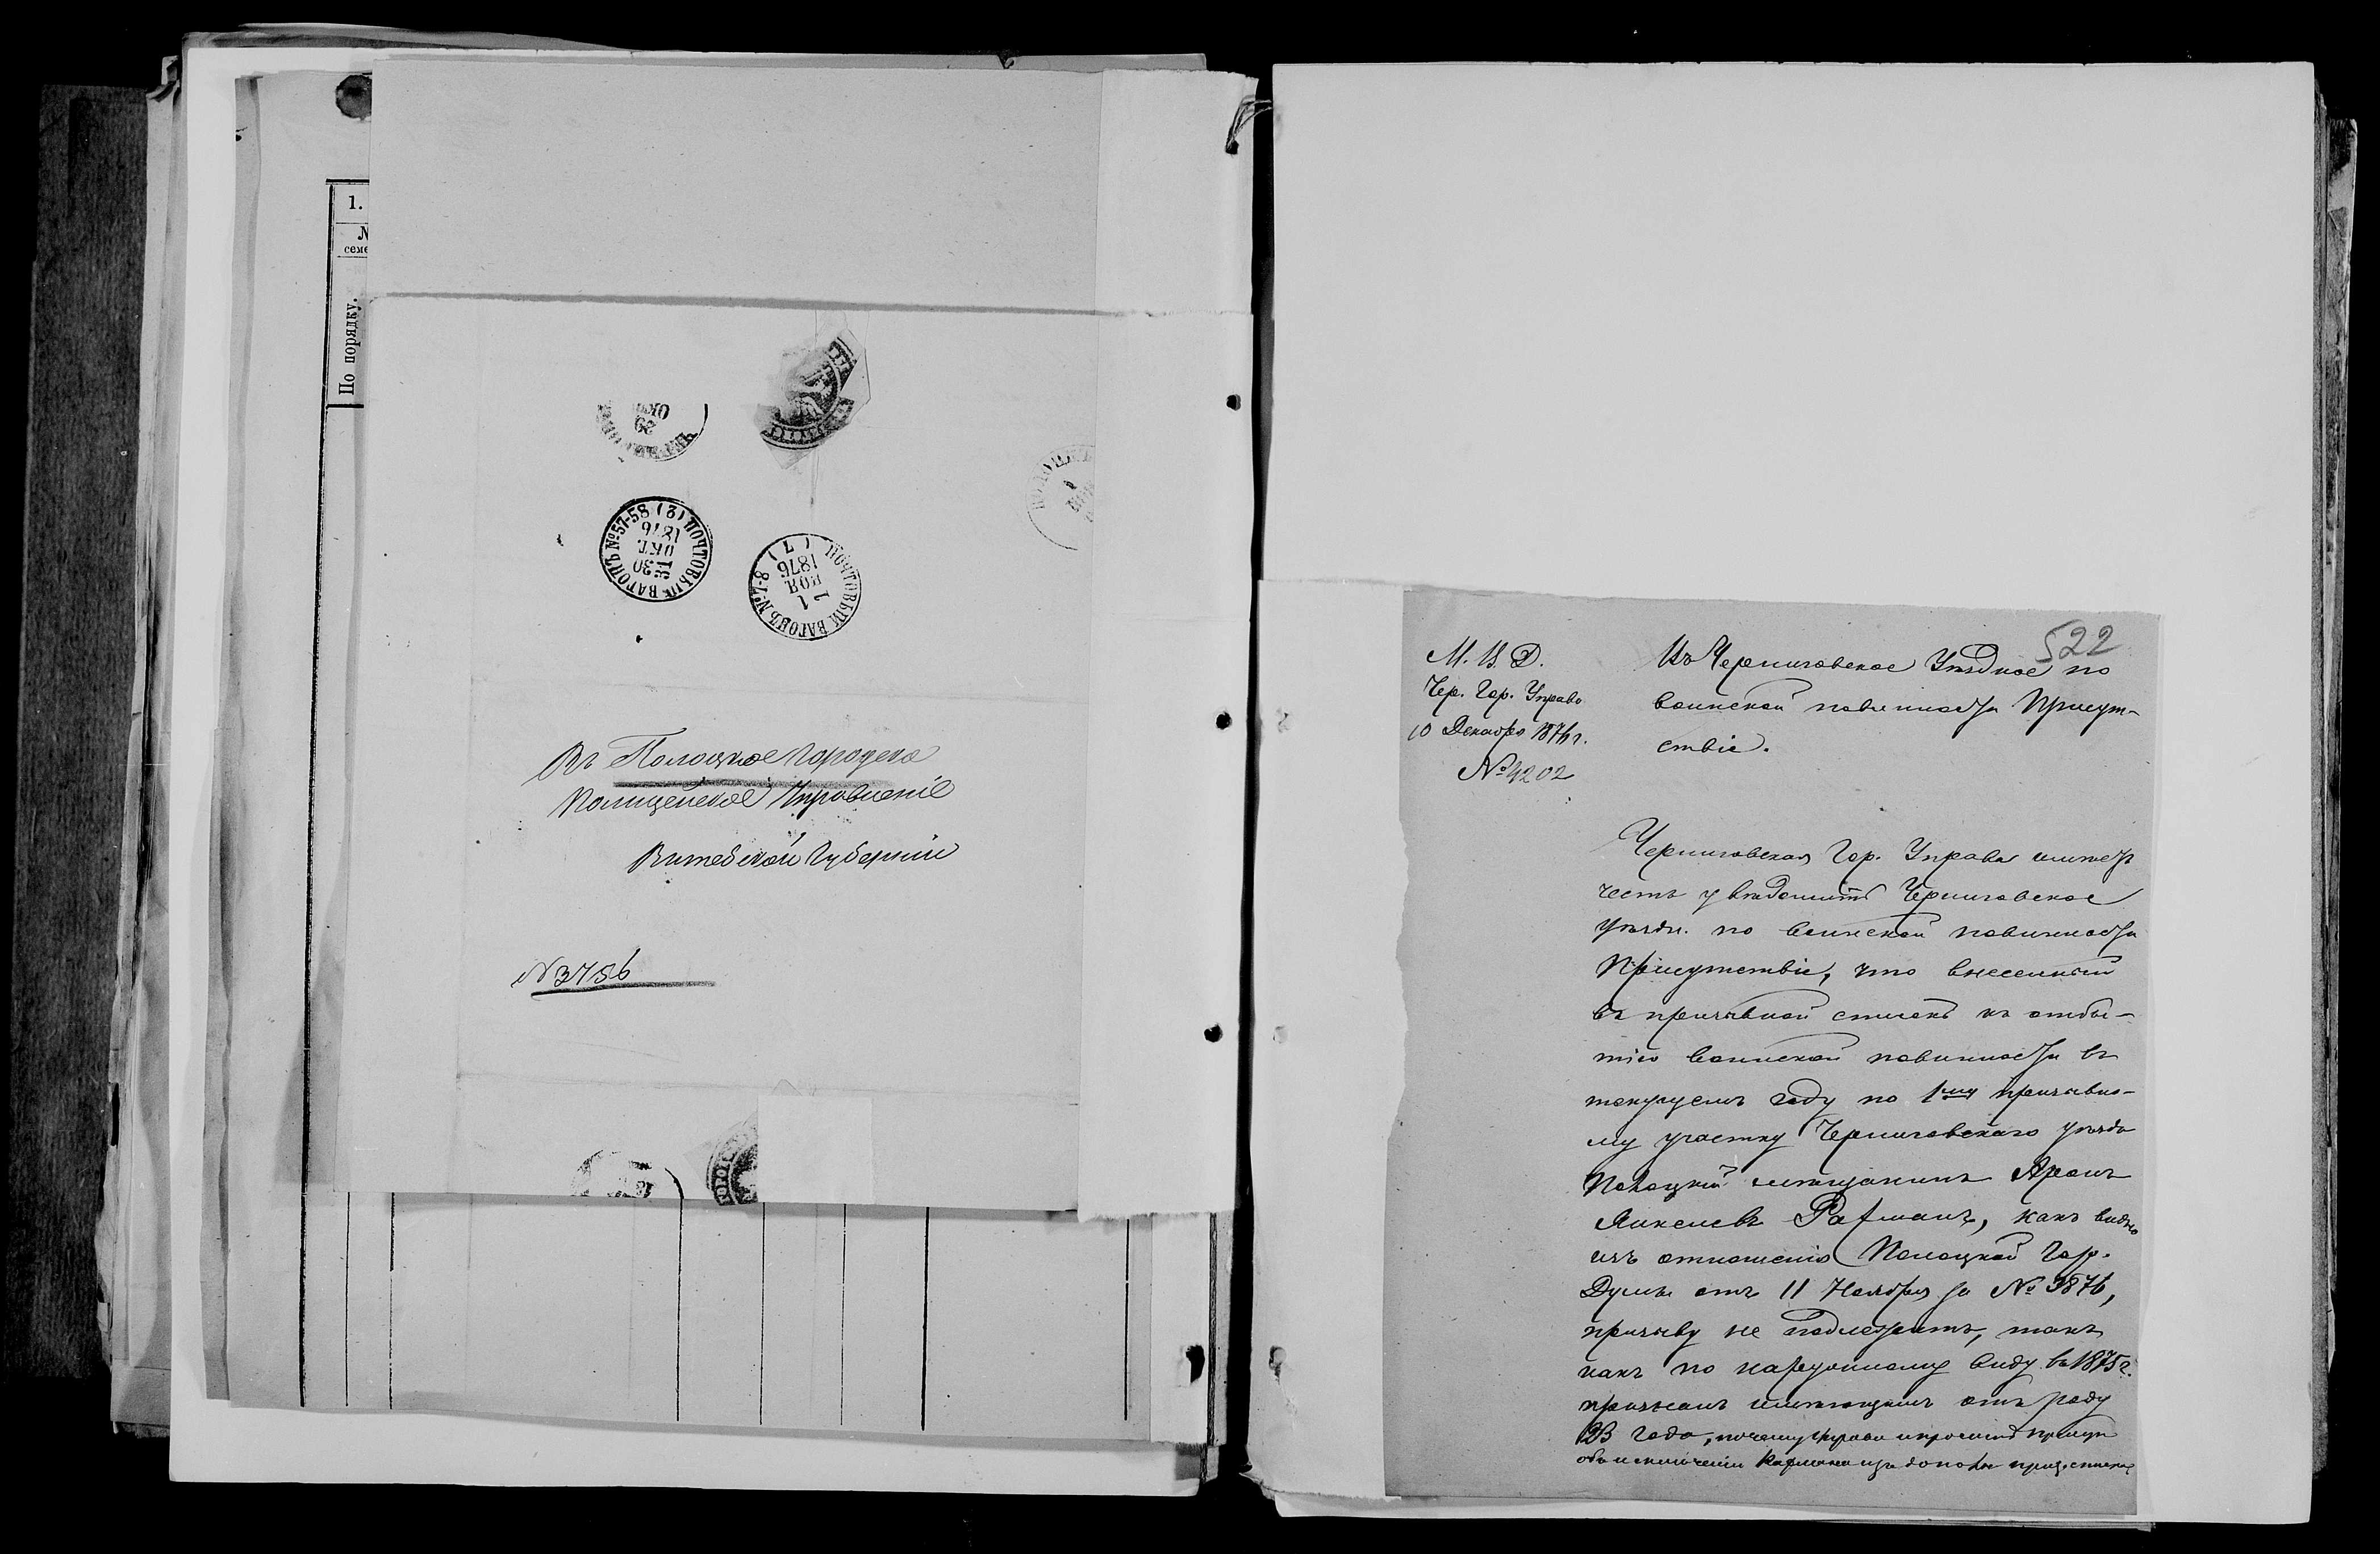 1.
№
семе
По порядку.
29
ОКТ
ПОЧТОВЫЙ ВАГОНЪ №57-58 (2)
30
31
ОКТ.
1876
ПОЧТОВЫЙ ВАГОНЪ №7-8 (7)
1
НОЯ
1876
ПОЛОЦКЪ
Въ Полоцкое Городское
Полицейское Управленіе
Витебской Губерніи
№3756
522
М. В. Д.
Чер. Гор. Управа
10 Декабря 1876 г.
№4202
Въ Черниговское Уѣздное по
воинской повинности Присут-
ствіе.
Черниговская Гор. Управа имѣетъ
честь увѣдомить Черниговское
уѣздн. по воинской повинности
Присутствіе, что внесенный
въ призывной списокъ къ отбы-
тію воинской повинности въ
текущемъ году по 1му призывно-
му участку Черниговскаго уѣзда
Полоцкій мѣщанинъ Аронъ
Янкелевъ, какъ видно
изъ отношенія Полоцкой Гор.
Думы отъ 11 Ноября за № 3876,
призыву не подлежитъ, такъ
какъ по наружному виду въ 1875 г.
признанъ имѣющимъ отъ роду
23 года, почему Управа и проситъ
объ исключеніи изъ